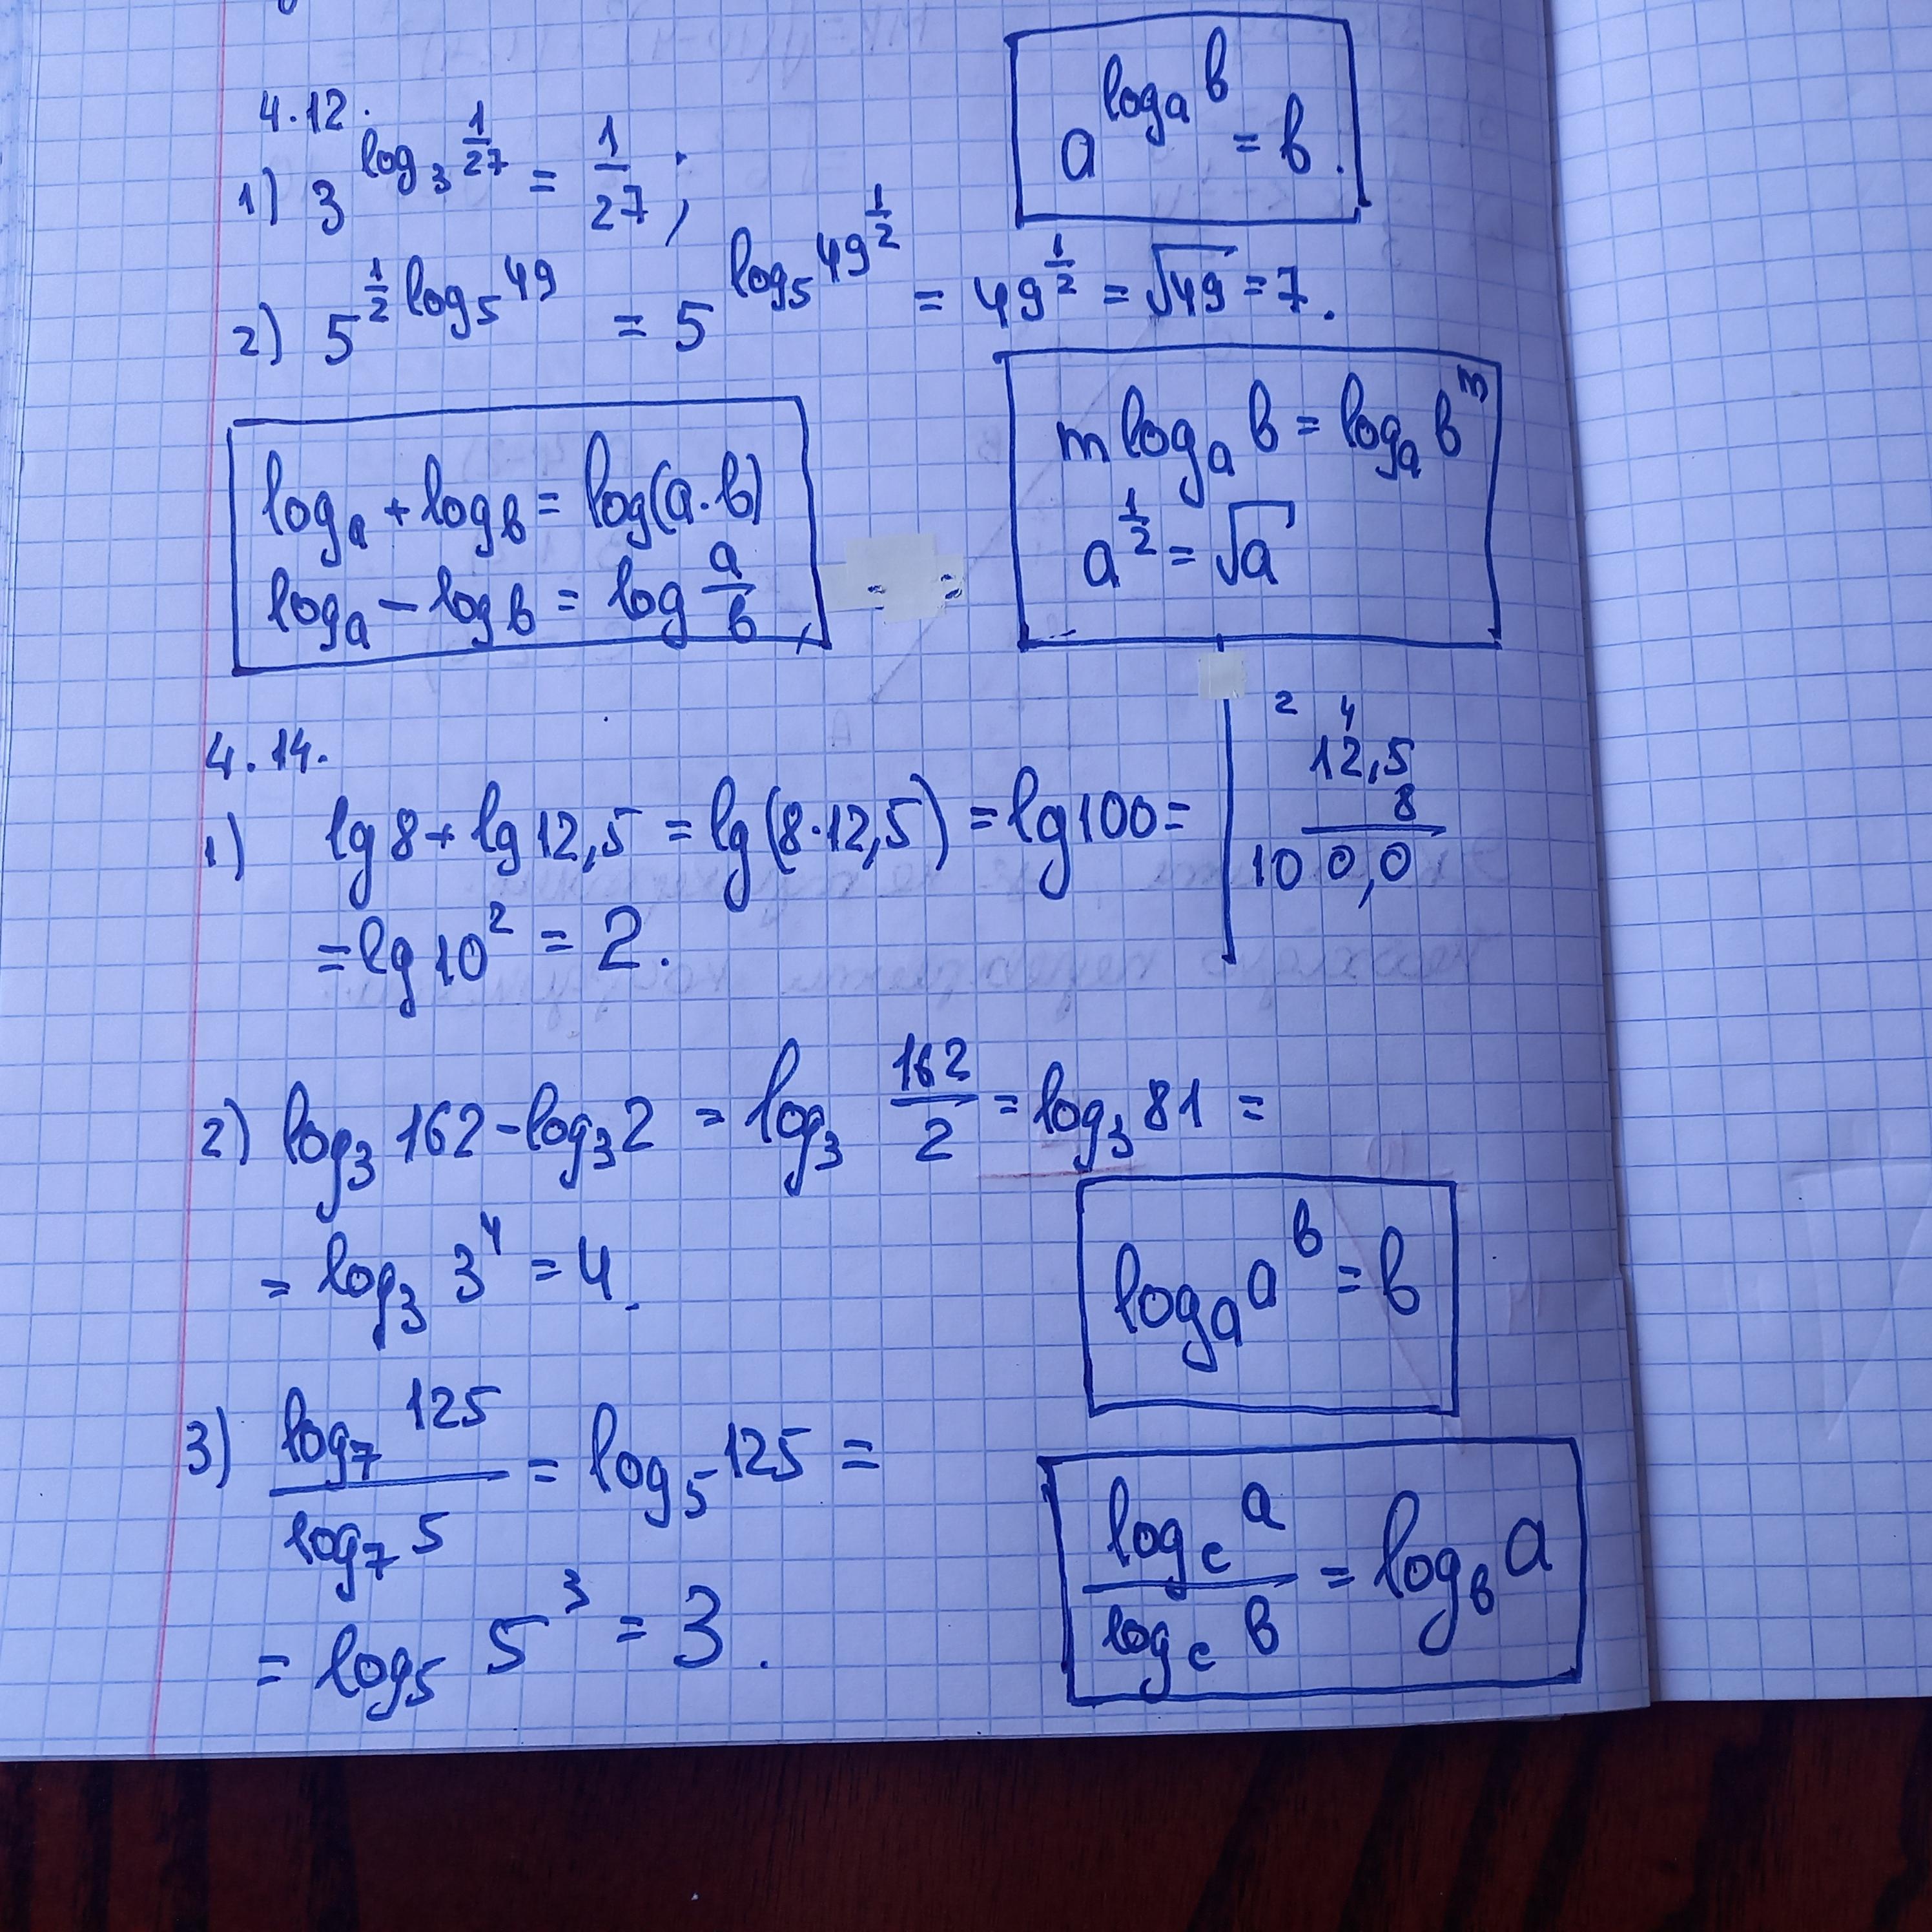 4.12.
1) 3^(log₃ 1/27) = 1/27;
a^(logₐ в) = в.
2) 5^(1/2 log₅ 49) = 5^(log₅ 49^(1/2)) = 49^(1/2) = √49 = 7.
logₐ + log в = log(a·в)
logₐ − log в = log a/в
m logₐ в = logₐ в^m
a^(1/2) = √a
4.14.
1) lg 8 + lg 12,5 = lg(8·12,5) = lg 100 =
= lg 10² = 2.
2 4
12,5
8
100,0
2) log₃ 162 − log₃ 2 = log₃ 162/2 = log₃ 81 =
= log₃ 3⁴ = 4.
logₐ a^в = в
3) log₇ 125 / log₇ 5 = log₅ 125 =
= log₅ 5³ = 3.
log_c a / log_c в = log_в a